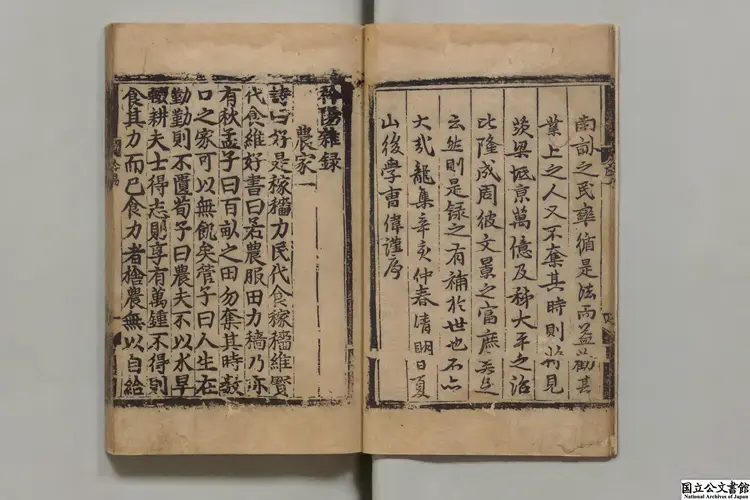 南畝之民率循是法而益勸其
業上之人又不奪其時則將見
茨梁坻京萬億及秭大平之治
比隆成周彼文景之富庶不足
云然則是録之有補於世也不亦
大哉龍集辛亥仲春清明日夏
山後學曺偉謹序
衿陽雜録
農家一
詩曰好是稼穡力民代食稼穡維寶
代食維好書曰若農服田力穡乃亦
有秋孟子曰百畝之田勿奪其時數
口之家可以無飢矣管子曰人生在
勤勤則不匱荀子曰農夫不以水旱
輟耕夫士得志則享有萬鍾不得則
食其力而已食力者捨農無以自給
国立公文書館
National Archives of Japan